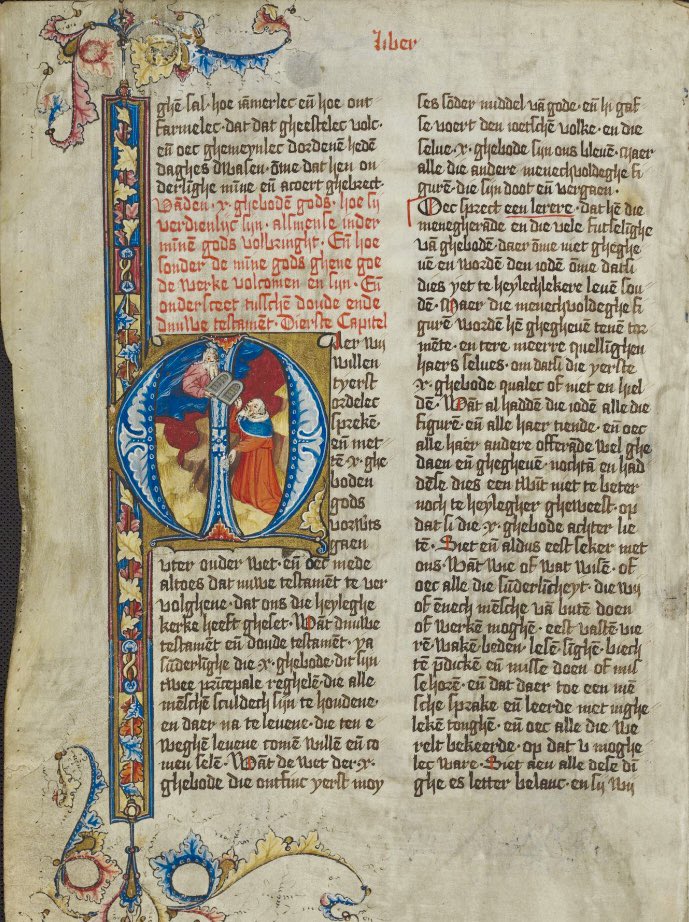 Liber
ghē sal · hoe iāmerlec eñ hoe ont
farmelec · dat dat gheestelec volc ·
eñ oec ghemeynlec dordenē hedē
daghes dwasen · ōme dat hen on
derlīghe mīne eñ acoert ghebrect ·
Vāden · x · ghebodē gods · hoe sy
verdienlyc sijn · alsmense inder
mīnē gods volbringht · Eñ hoe
sonder de mīne gods ghene goe
de werke volcomen en sijn · Eñ
ondersceet tusschē doude ende
dnuwe testamēt · Dierste Capitel
Aer wij
willen
tyerst
ordelec
sprekē ·
eñ met
tē · x · ghe
boden
gods
vorwīts
gaen
vter ouder wet · eñ oec mede
altoes dat nuwe testamēt te ver
volghene · dat ons die heyleghe
kerke heeft gheset · Wāt dnuwe
testamēt eñ doude testamēt · ya
sūderlīghe die · x · ghebode · dit sijn
twee prīcepale reghelē · die alle
mēschē sculdech sijn te houdene ·
en daer na te levene · die ten e
weghē levene comē willē eñ co
men selē · Wāt de wet der · x ·
ghebode die ontfinc yerst moy
ses sōder middel vā gode · eñ hi gaf
se voert den ioetschē volke · en die
selve · x · ghebode sijn ons blevē · Maer
alle die andere menechvoldeghe fi
gurē · die sijn doot en vergaen ·
Oec sprect een lerere · dat hē die
menegherāde en die vele sutselīghe
vā ghebodē · daer ōme niet gheghe
vē en wordēn den iodē ōme datsi
dies yet te heylechlekere levē sou
dē · Maer die menechvoldeghe fi
gurē wordē hē gheghevē tenē tor
mēte · en tere meerre quellīghen
haers selves · om datsi die yerste
· x · ghebode qualec of niet en hiel
dē · Wāt al haddē die iodē alle die
figurē · eñ alle haer tiende · eñ oec
alle haer andere offerāde wel ghe
daen eñ gheghevē · nochtā en had
dēse dies een twīt niet te beter
noch te heylegher gheweest · op
dat si die · x · ghebode achter lie
tē · Siet eñ aldus eest seker met
ons · Wāt wie of wat wisē · of
oec alle die sūderlīcheyt · die wij
of ēnech mēsche vā butē doen
of werkē moghē · eest vastē vie
rē · wakē beden · lesē · sīghē · biech
tē p̄dickē eñ misse doen of mis
se horē · eñ dat daer toe een mē
sche sprake en leerde met īnghe
lekē tonghē · eñ oec alle die we
relt bekeerde · op dat v moghe
lec ware · Siet aen alle dese dī
ghe es letter belanc · en sy wij